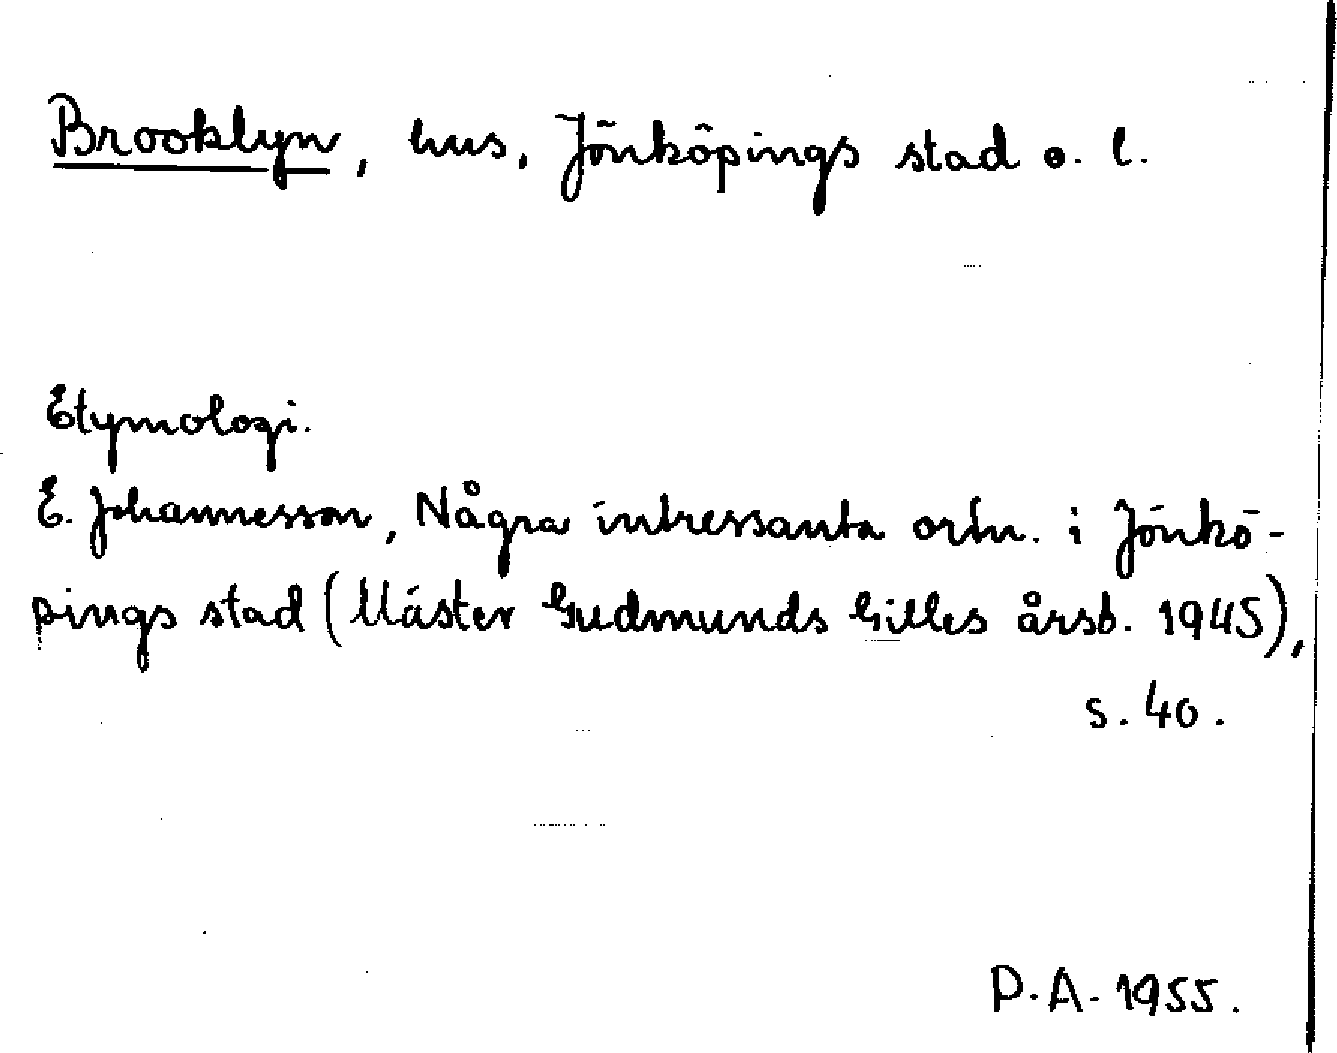 Brooklyn, hus, Jönköpings stad o. l.
Etymologi.
E. Johannesson, Några intressanta ortn. i Jönkö-
pings stad (Mäster Gudmunds Gilles årsb. 1945),
s. 40.
P.A. 1955.